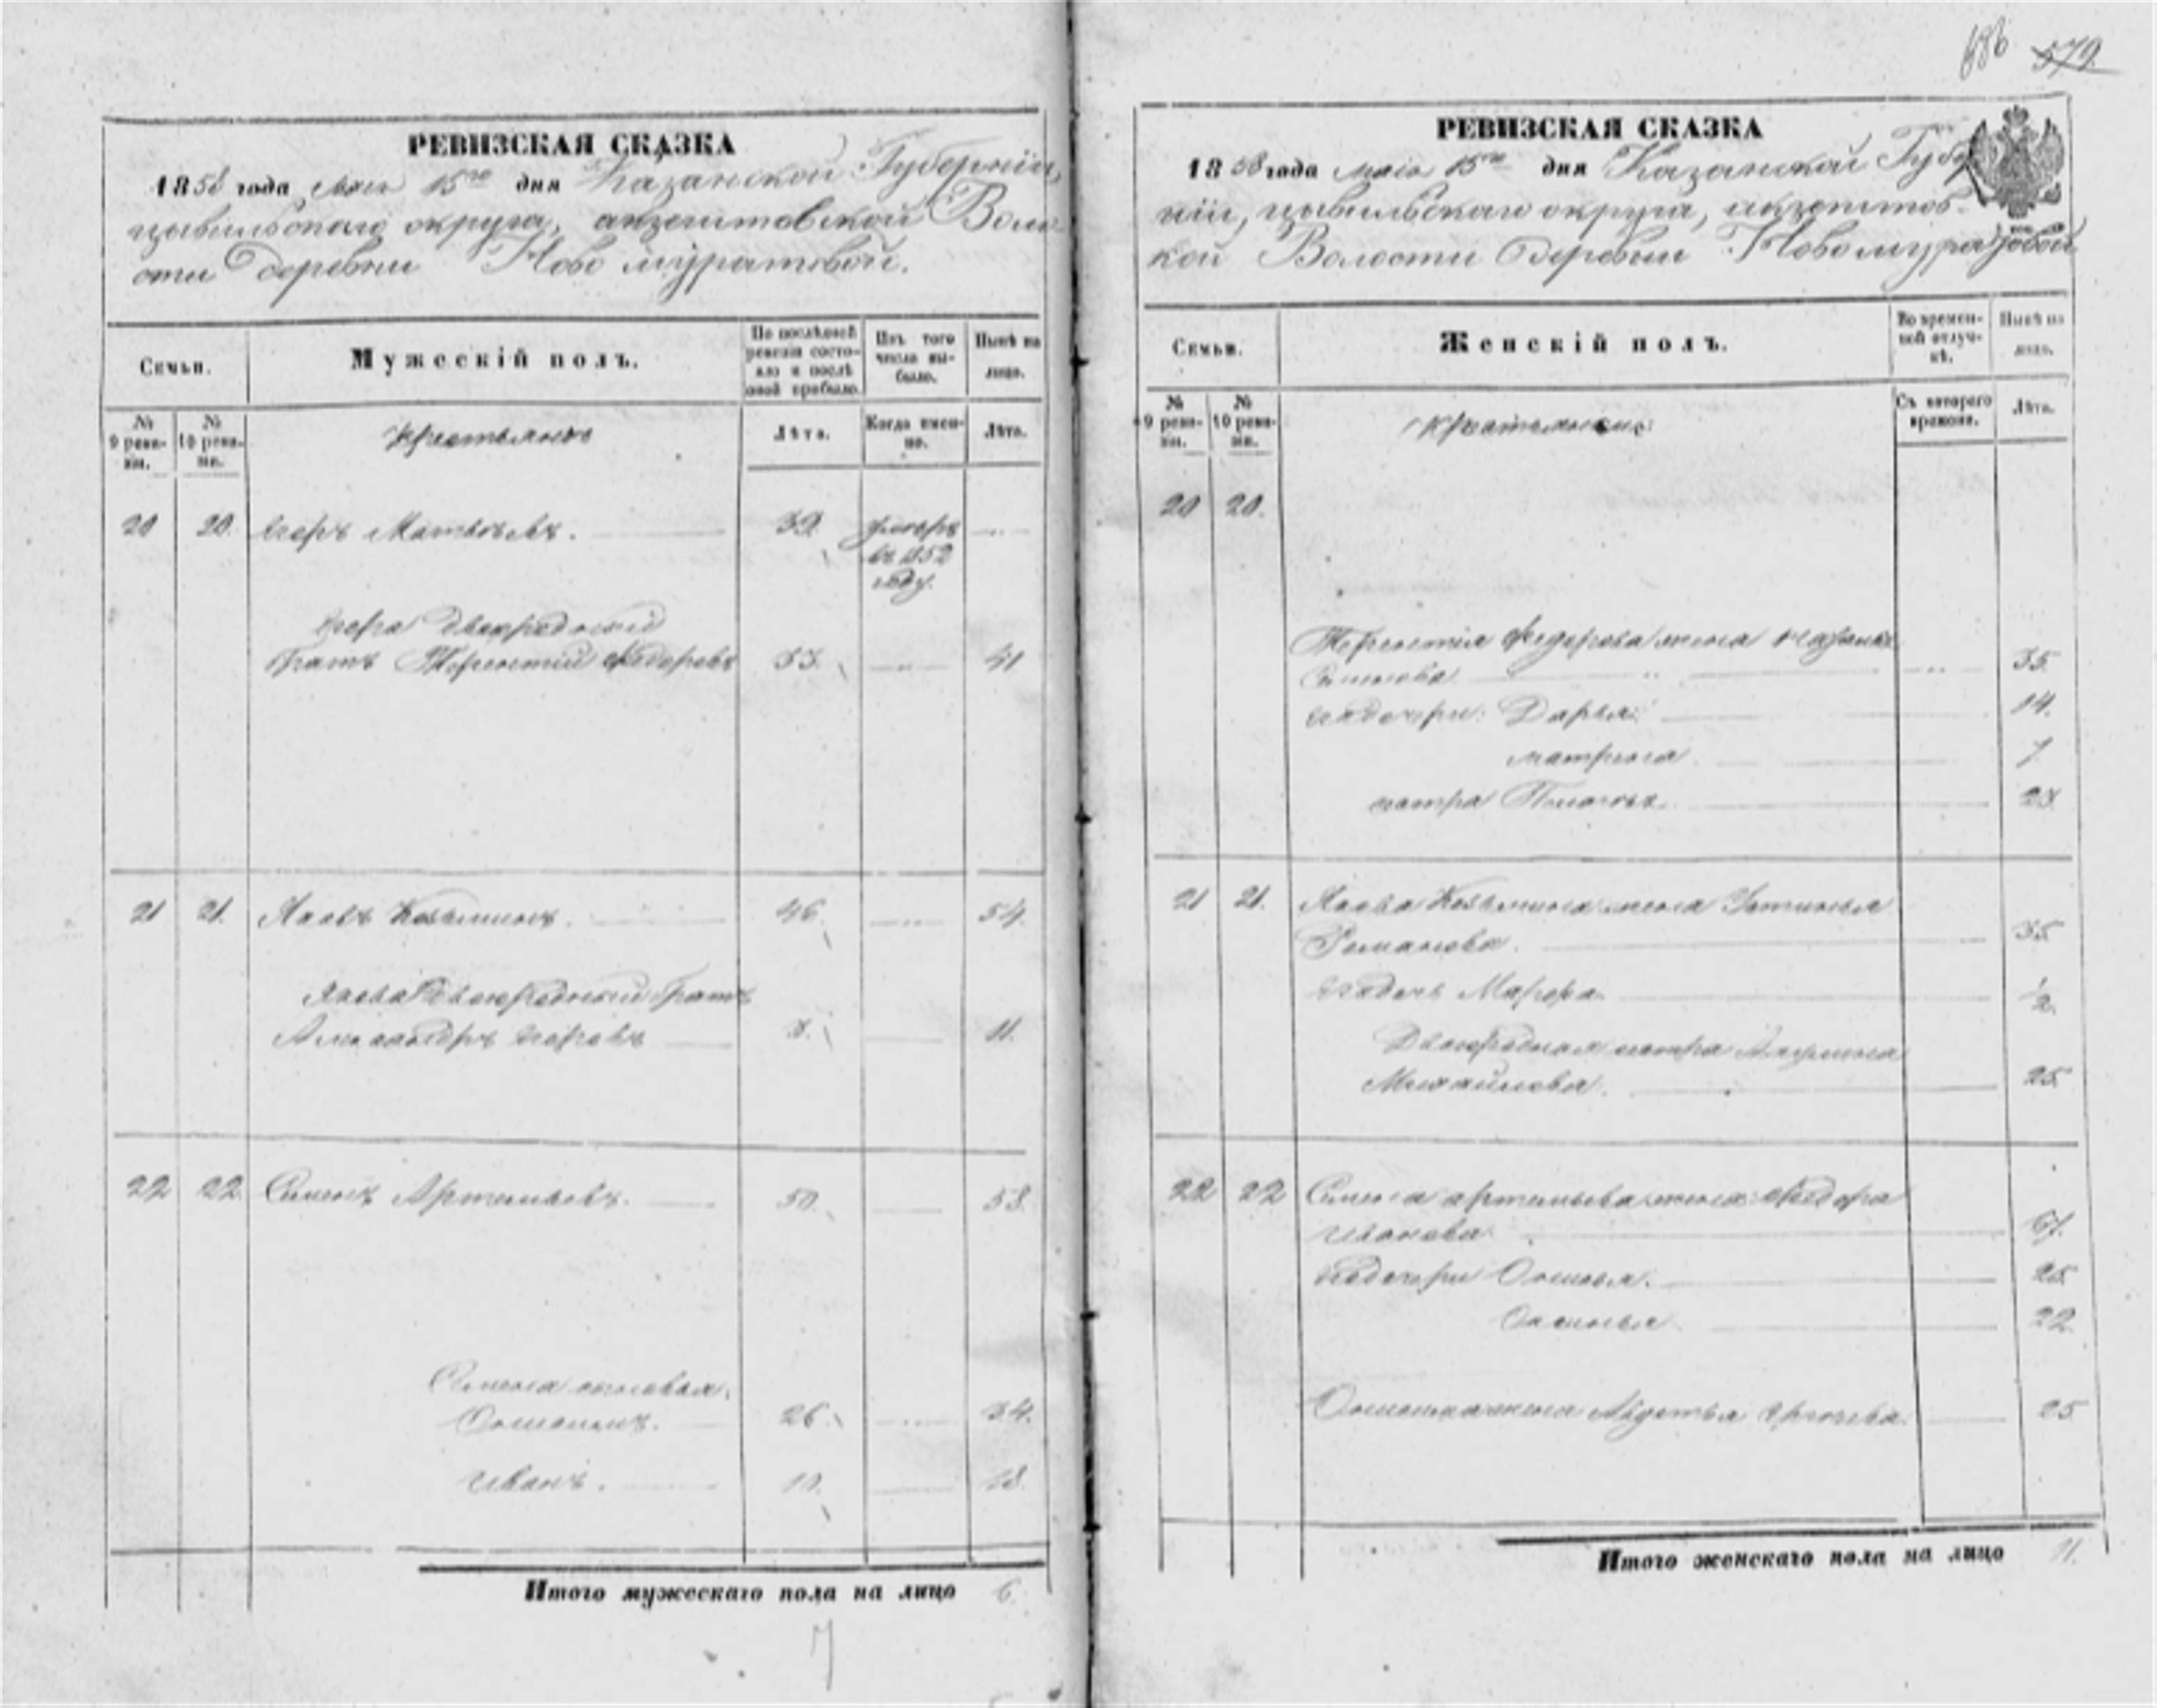 686 579.
РЕВИЗСКАЯ СКАЗКА
1858 года Мая 15го дня Казанской Губернии,
цывильскаго округа, акзегитовской Воло
сти деревни Ново муратовой.
Семьи.
Мужескій полъ.
По послѣдней ревизіи состояло и послѣ оной прибыло.
Изъ того числа выбыло.
Нынѣ на лицо.
№ 9 ревизіи.
№ 10 ревизіи.
Крестьянъ
Лѣта.
Когда именно.
Лѣта.
20 20. Егоръ Матвѣевъ. 39. умеръ
въ 1852
году.
Егора двоюродный
братъ Терентій Федоровъ 33. 41
21 21. Яковъ Козьминъ. 46. 54.
Якова двоюродный братъ
Александръ Егоровъ 3. 11.
22 22 Семенъ Артемьевъ. 50. 58.
Семена сыновья.
26. 34.
Иванъ. 10. 18.
Итого мужескаго пола на лицо 6.
7
РЕВИЗСКАЯ СКАЗКА
1858 года мая 15го дня Казанской Губер
ніи, цывильскаго округа, акзегитов-
кой Волости Деревни Новомуратовой
Семьи.
Женскій полъ.
Во временной отлучкѣ.
Нынѣ на лицо.
№ 9 ревизіи.
№ 10 ревизіи.
Съ котораго времени.
Лѣта.
20 20.
Терентія Федорова жена
Семенова 35.
дочери: Дарья 14.
матрена 7
сестра 23.
21 21. Якова Козьмина жена Устинья
Романова. 35.
дочь Марфа 1/2.
Двоюродная сестра
Михайлова. 25.
22 22 Семена артемьева жена Федора
Иванова. 61.
дочери 25.
22.
жена Авдотья 25
Итого женскаго пола на лицо 11.